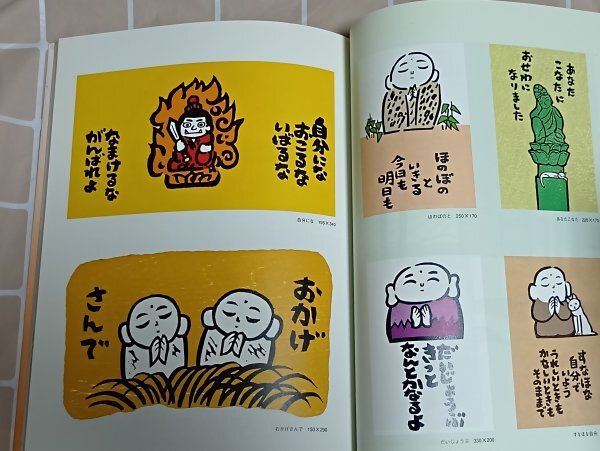 自分にな
おこるな
いばるな
なまけるな
がんばれよ
自分にな 195×340
おかげ
さんで
おかげさんで 150×290
ほのぼの
と
いきる
今日も
明日も
ほのぼのと 250×170
あなた
こなたに
おせわに
なりました
あなたこなた 220×170
だいじょうぶ
きっと
なんとかなるよ
だいじょうぶ 330×200
すなほな
自分で
いよう
うれしいときも
かなしいときも
そのままで
すなほな自分